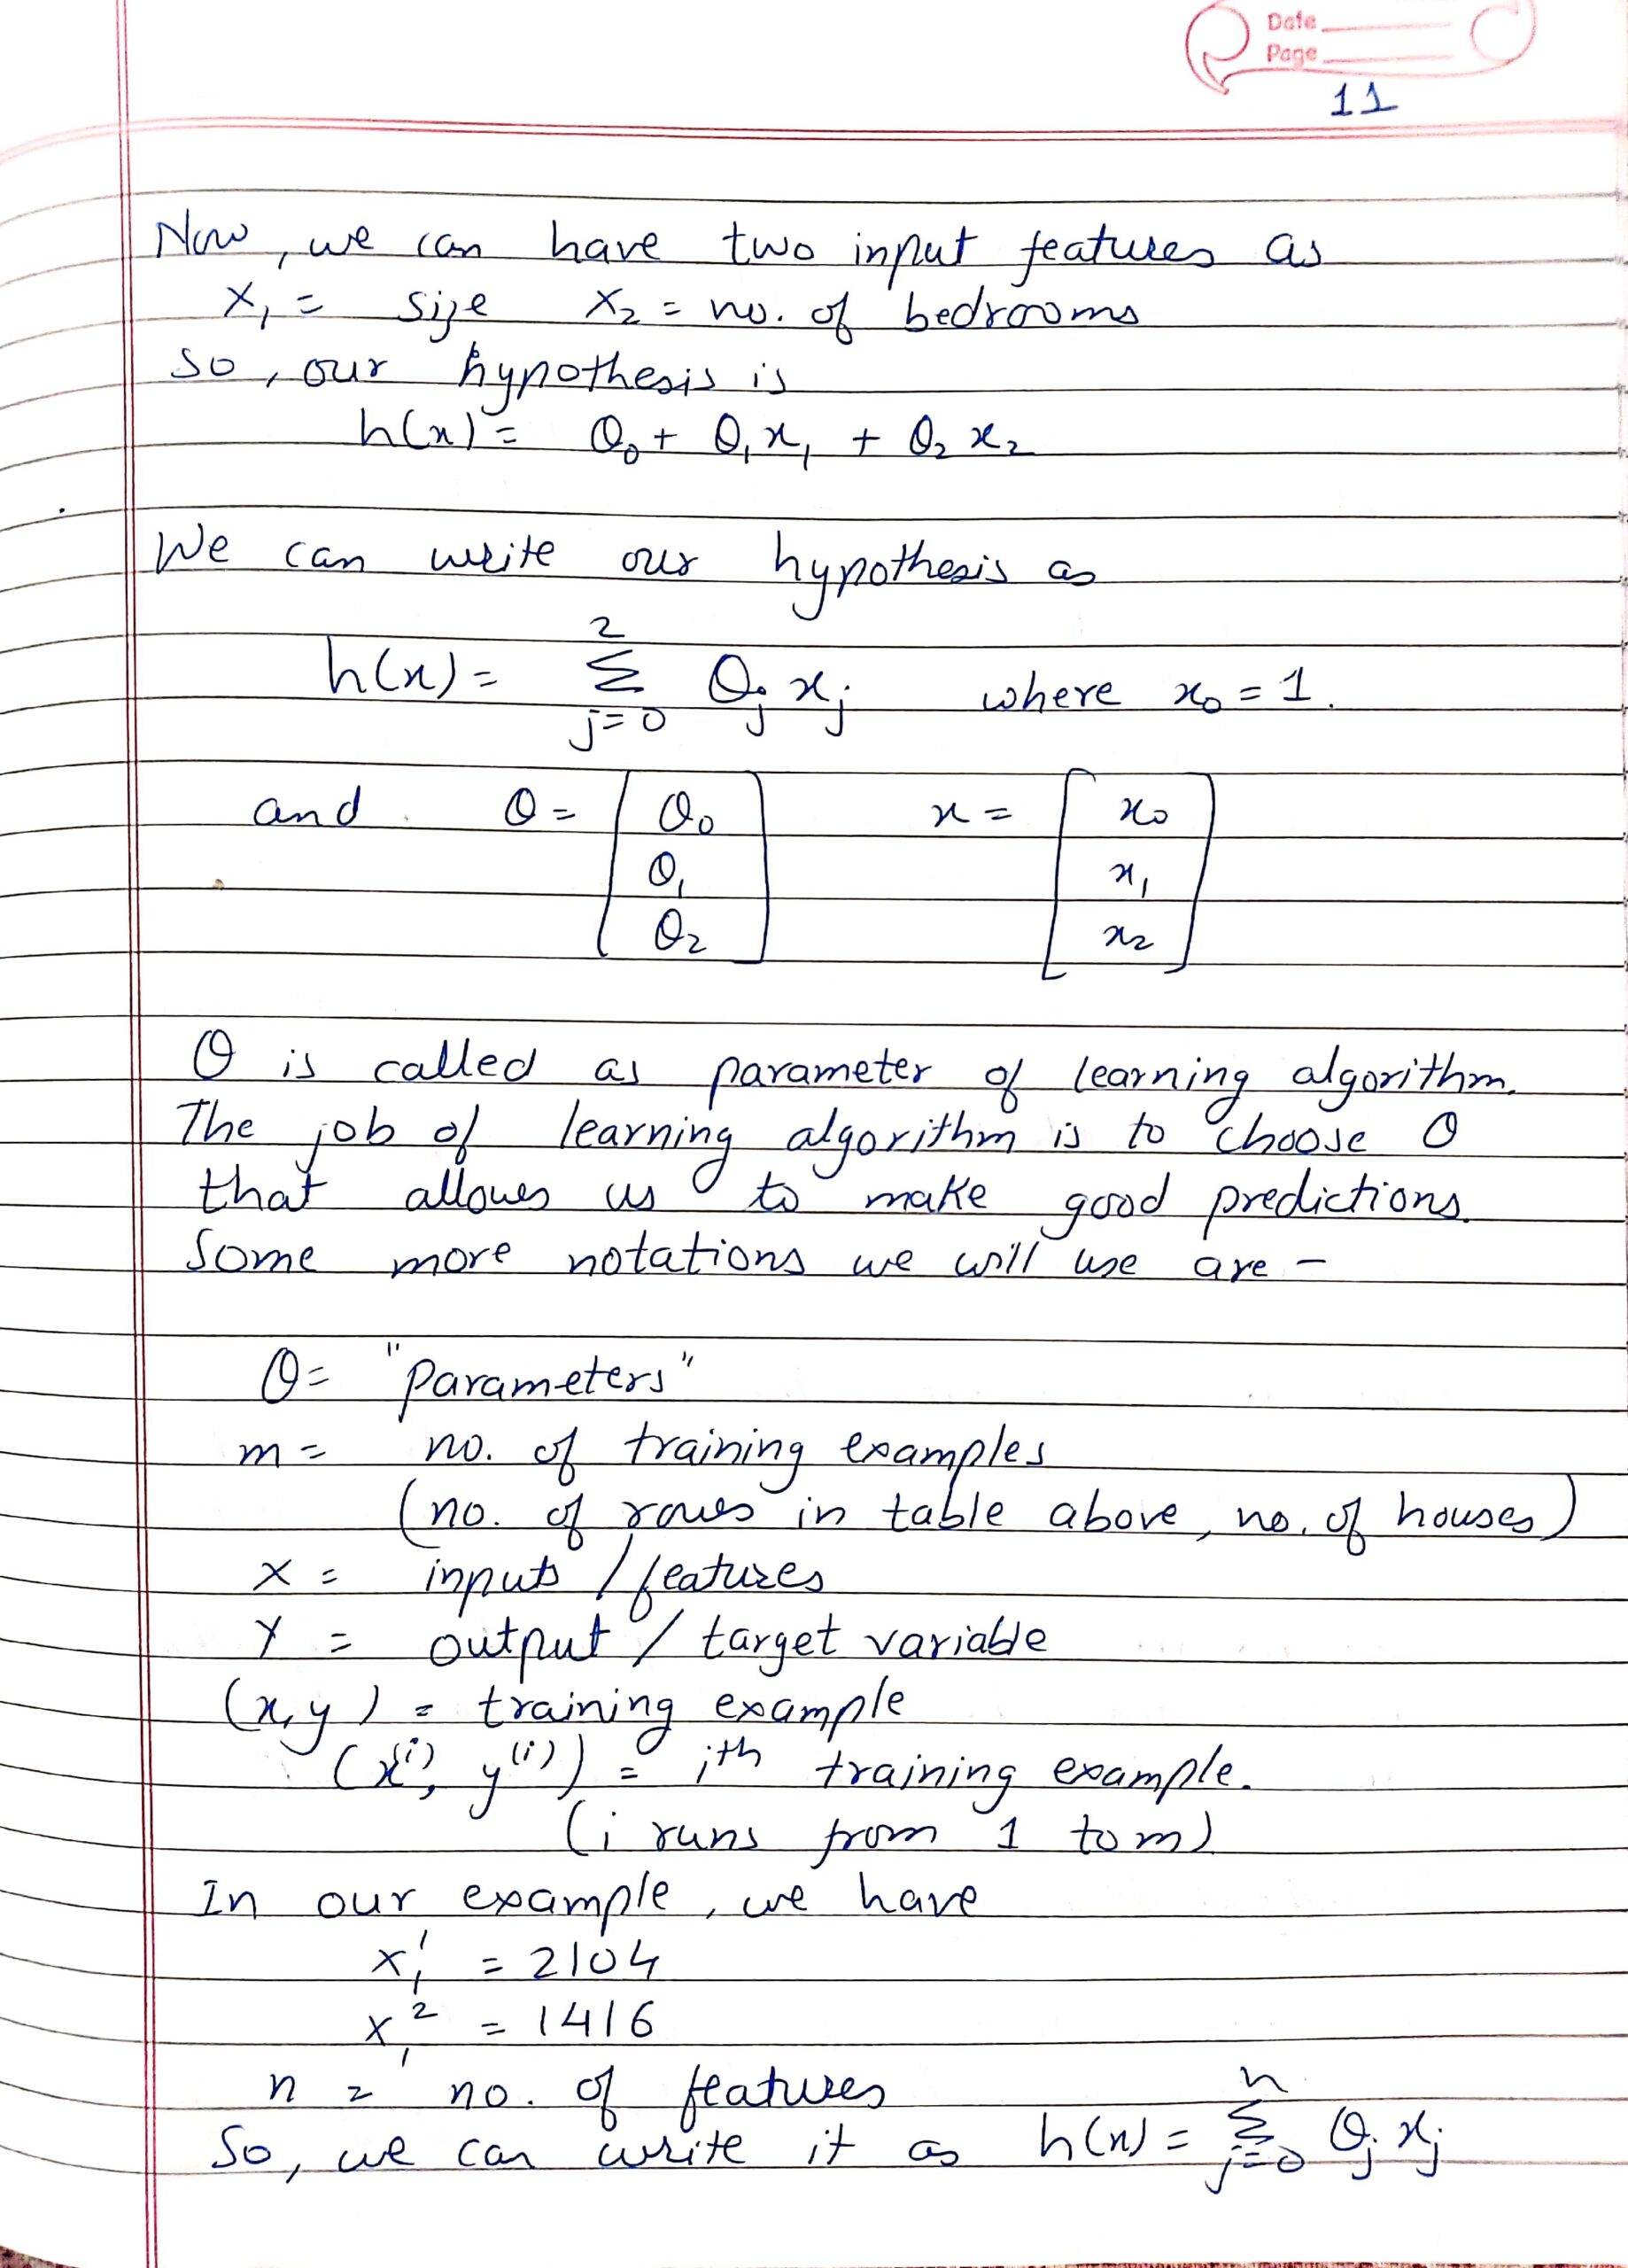 Date
Page
11
Now, we can have two input features as
x₁ = size x₂ = no. of bedrooms
so, our hypothesis is
h(x) = θ₀ + θ₁x₁ + θ₂x₂
We can write our hypothesis as
h(x) = Σ_{j=0}^{2} θⱼ xⱼ where x₀ = 1.
and θ = [θ₀ θ₁ θ₂] x = [x₀ x₁ x₂]
θ is called as parameter of learning algorithm.
The job of learning algorithm is to choose θ
that allows us to make good predictions.
Some more notations we will use are -
θ = "Parameters"
m = no. of training examples
(no. of rows in table above, no. of houses)
X = inputs / features
Y = output / target variable
(x, y) = training example
(x⁽ⁱ⁾, y⁽ⁱ⁾) = ith training example.
(i runs from 1 to m)
In our example, we have
x₁¹ = 2104
x₁² = 1416
n = no. of features
So, we can write it as h(x) = Σ_{j=0}^{n} θⱼ xⱼ